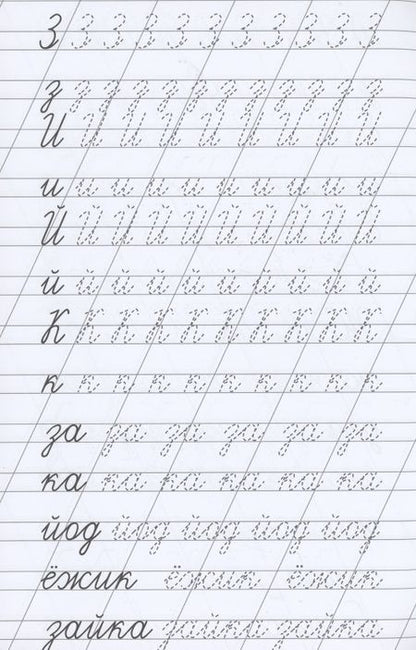 З З З З З З З З З З З
з з з з з з з з з з
И И И И И И И И И
и и и и и и и и и и
Й Й Й Й Й Й Й Й Й Й
й й й й й й й й й й
К К К К К К К К К К
к к к к к к к к к к
за за за за за за
ка ка ка ка ка ка
йод йод йод йод йод
ёжик ёжик ёжик
зайка зайка зайка